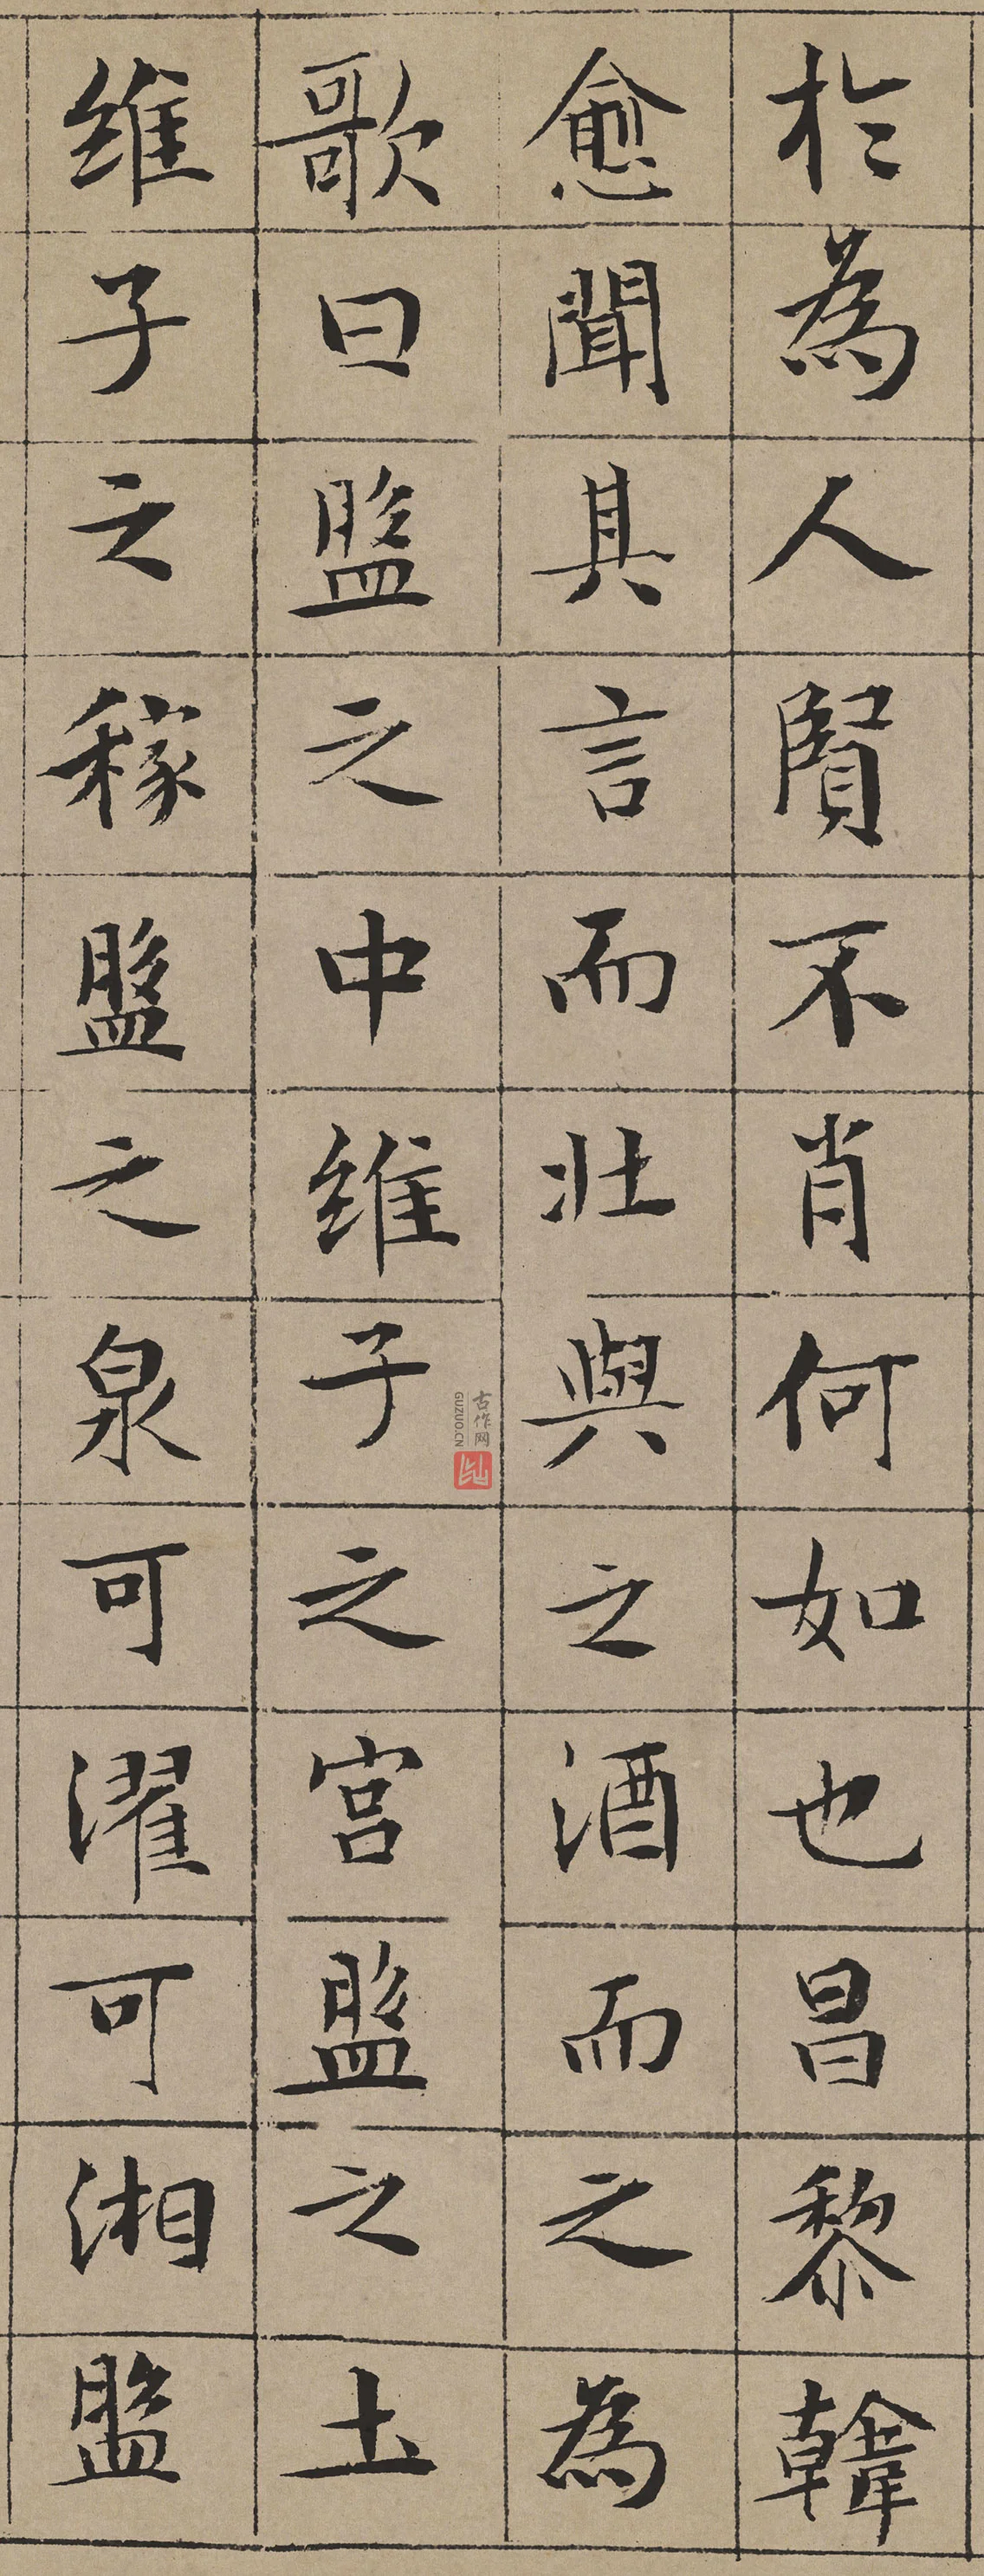 於為人賢不肖何如也昌黎韓
愈聞其言而壯與之酒而之為
歌曰盤之中維子之宮盤之土
維子之稼盤之泉可濯可湘盤
古作网
GUZUO.CN